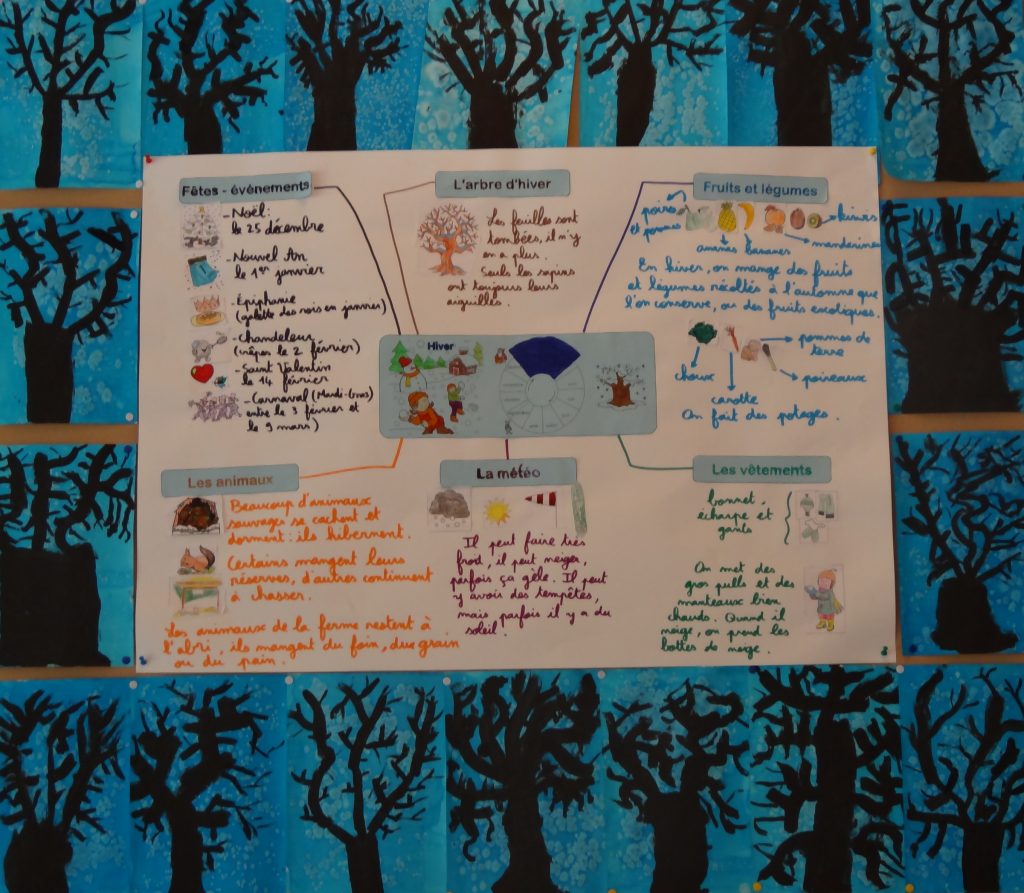 Fêtes - événements
- Noël:
le 25 décembre
- Nouvel An
le 1er janvier
- Épiphanie
(galette des rois en janvier)
- Chandeleur
(crêpes le 2 février)
- Saint Valentin
le 14 février
- Carnaval (Mardi-Gras)
entre le 3 février et
le 9 mars)
L'arbre d'hiver
Les feuilles sont
tombées, il n'y
en a plus.
Seuls les sapins
ont toujours leurs
aiguilles.
Fruits et légumes
poires
et pommes
ananas
bananes
mandarines
kiwis
En hiver, on mange des fruits
et légumes récoltés à l'automne que
l'on conserve, ou des fruits exotiques.
choux
carotte
pommes de
terre
poireaux
On fait des potages.
Hiver
Les animaux
Beaucoup d'animaux
sauvages se cachent et
dorment: ils hibernent.
Certains mangent leurs
réserves, d'autres continuent
à chasser.
Les animaux de la ferme restent à
l'abri, ils mangent du foin, du grain
ou du pain.
La météo
Il peut faire très
froid, il peut neiger,
parfois ça gèle. Il peut
y avoir des tempêtes,
mais parfois il y a du
soleil.
Les vêtements
bonnet,
écharpe et
gants
On met des
gros pulls et des
manteaux bien
chauds. Quand il
neige, on prend les
bottes de neige.